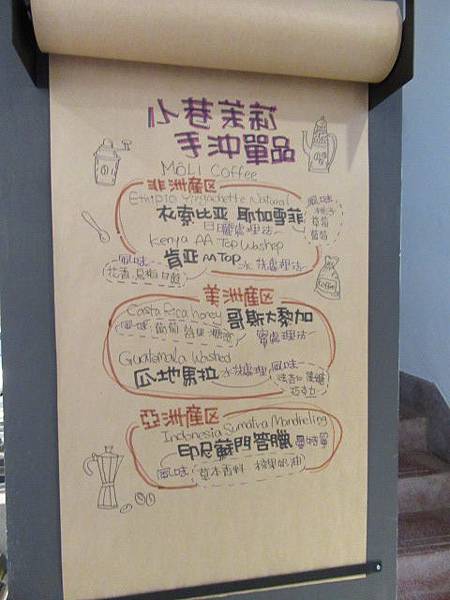 小巷茉莉
手沖單品
MÖLI Coffee
非洲產区
Ethiopia Yirgacheffe Natural
衣索比亚 耶加雪菲
日曬處理法
風味
草莓
Kenya AA Top Washed
肯亚 AA TOP 水洗處理法
風味
花香
美洲產区
Costa Rica honey
哥斯大黎加
風味 葡萄
蜜處理法
Guatemala Washed
瓜地馬拉 水洗處理 風味
巧克力
亞洲產区
Indonesia Sumatra Mandheling
印尼蘇門答臘 曼特寧
風味 草本香料 奶油
Coffee